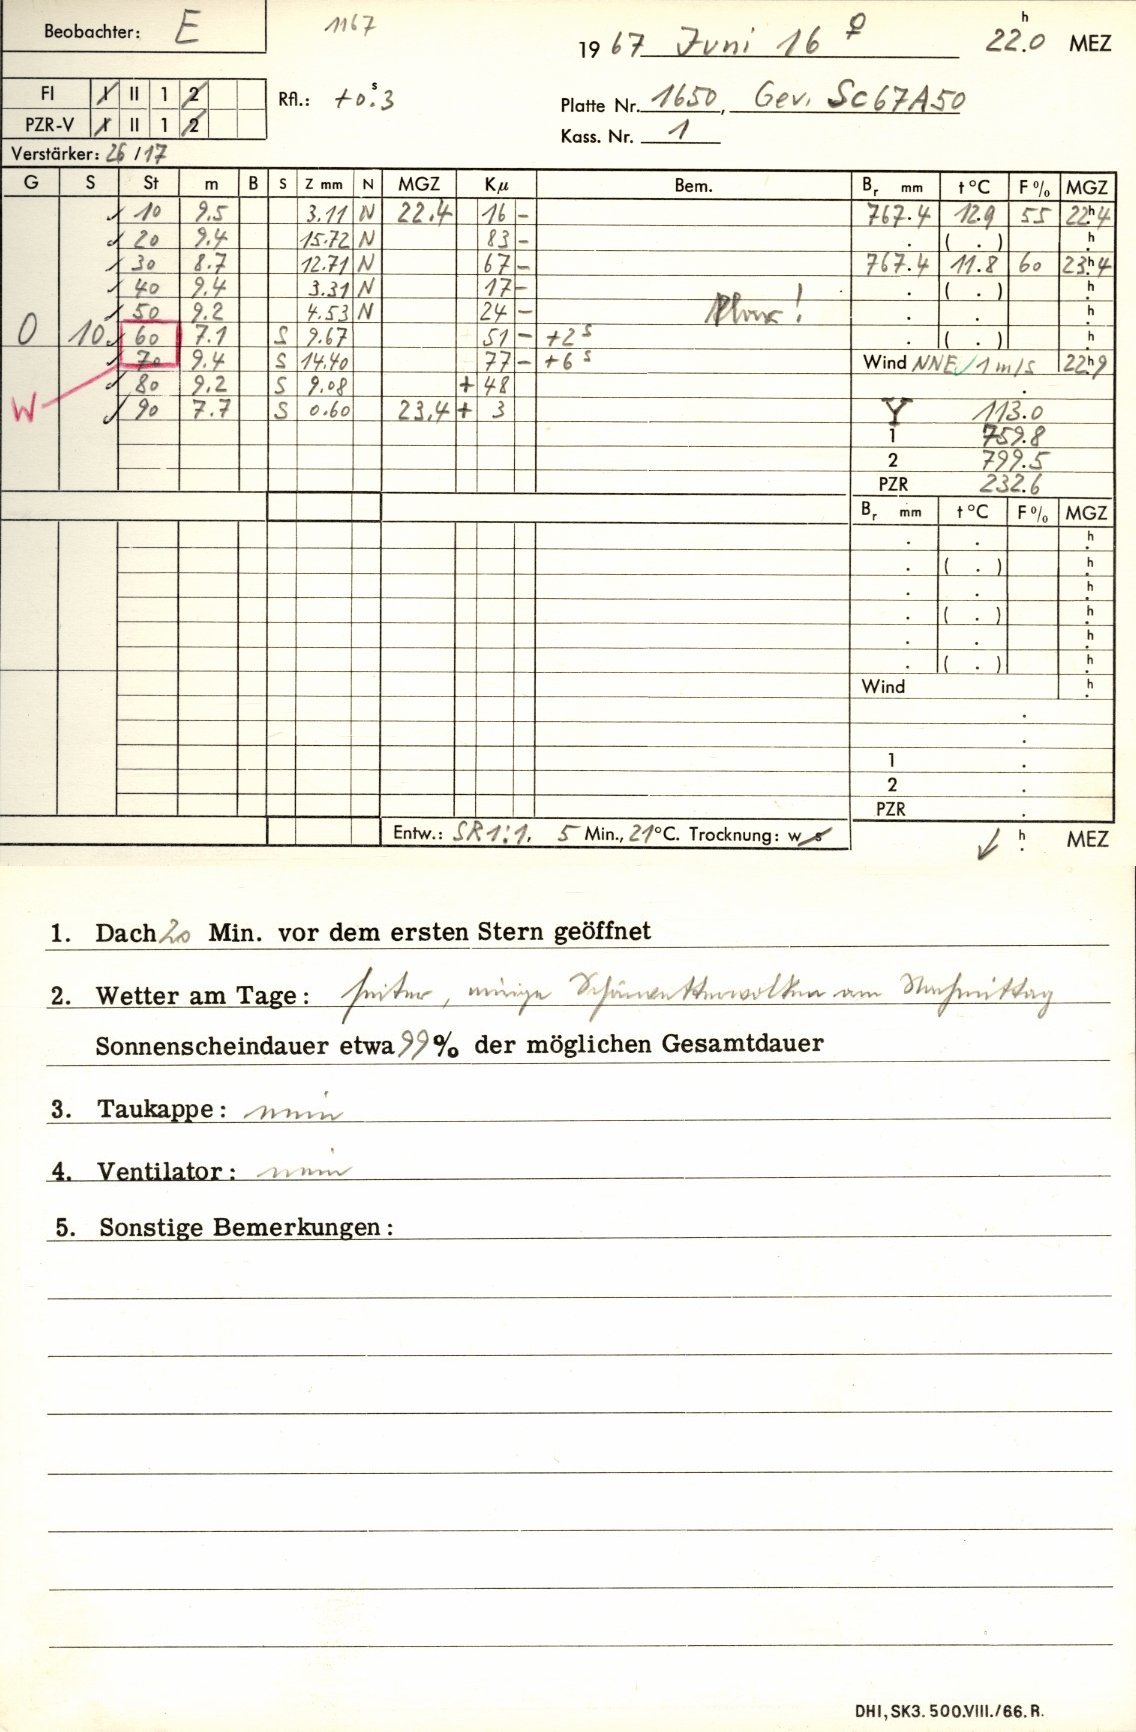 Beobachter: E 1167 1967 Juni 16 ♀ 22.0 h MEZ
FI I II 1 2 Rfl.: +0.3 s Platte Nr. 1650, Gev. Sc67A50
PZR-V I II 1 2 Kass. Nr. 1
Verstärker: 26 / 17
G S St m B S Z mm N MGZ Kµ Bem. Br mm t °C F % MGZ
10 9.5 3.11 N 22.4 16 - 767.4 12.9 55 22h4
20 9.4 15.72 N 83 - . ( . ) h.
30 8.7 12.71 N 67 - 767.4 11.8 60 23h4
40 9.4 3.31 N 17 - . ( . ) h.
50 9.2 4.53 N 24 - . . h.
0 10 60 7.1 S 9.67 51 - +2 s . ( . ) h.
70 9.4 S 14.40 77 - +6 s Wind NNE / 1 m/s 22h9
80 9.2 S 9.08 + 48 .
W 90 7.7 S 0.60 23.4 + 3 Y 113.0
1 759.8
2 799.5
PZR 232.6
Br mm t °C F % MGZ
. . h.
. ( . ) h.
. . h.
. ( . ) h.
. . h.
. ( . ) h.
Wind h.
.
.
1 .
2 .
PZR .
Entw.: SR 1:1, 5 Min., 21 °C. Trocknung: w s h. MEZ
1. Dach 20 Min. vor dem ersten Stern geöffnet
2. Wetter am Tage: heiter, einige Schönwetterwolken am Nachmittag
Sonnenscheindauer etwa 99 % der möglichen Gesamtdauer
3. Taukappe: nein
4. Ventilator: nein
5. Sonstige Bemerkungen:
DHI, SK3. 500.VIII./66. R.